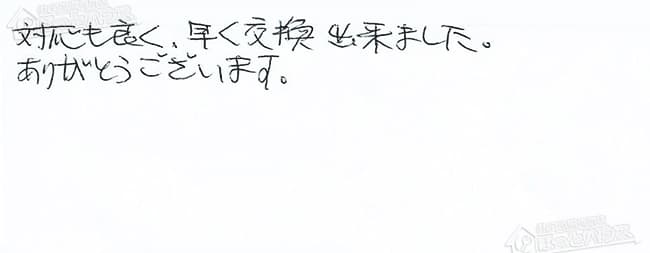 対応も良く、早く交換出来ました。
ありがとうございます。